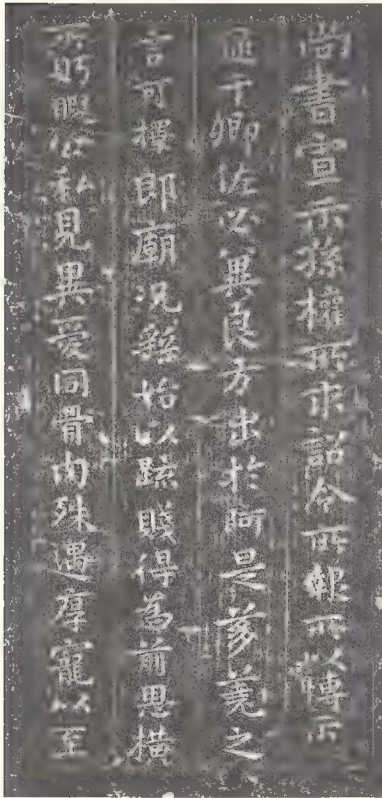 尚書宣示孫權所求詔令所報所以博示
逮于卿佐必冀良方出於阿是芻蕘之
言可擇郎廟況繇始以疏賤得為前恩橫
所盻睨公私見異愛同骨肉殊遇厚寵以至